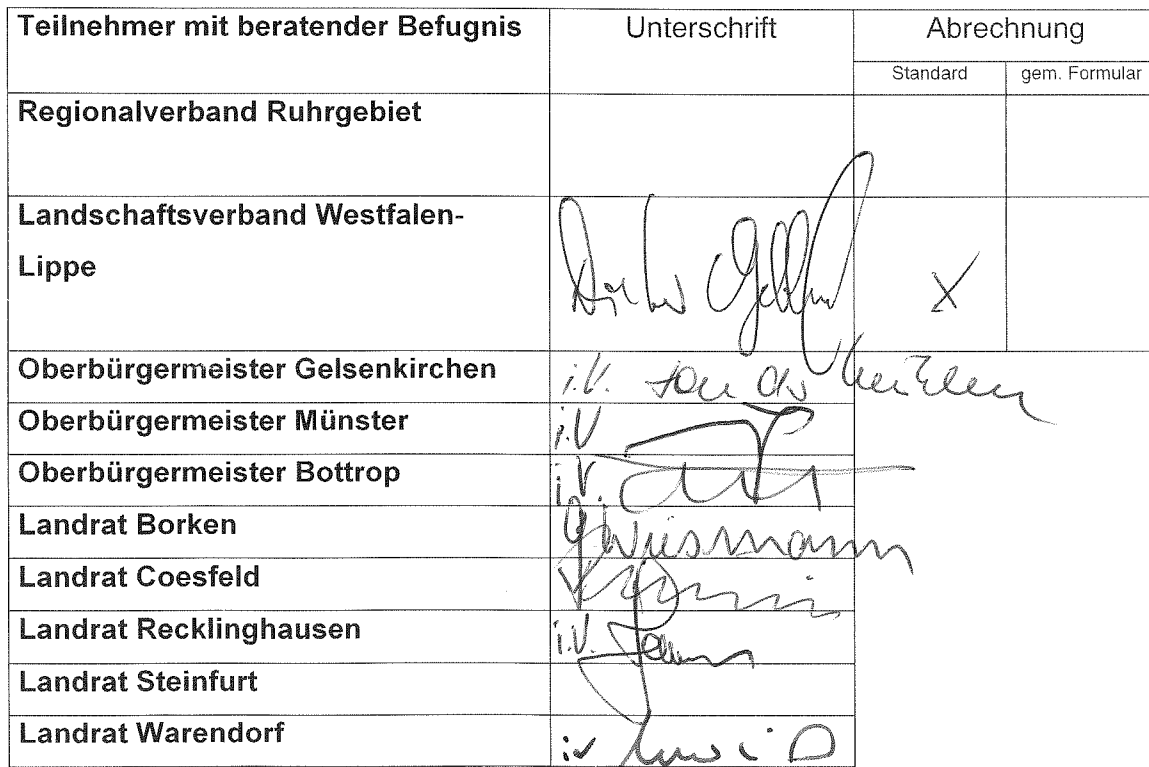 Teilnehmer mit beratender Befugnis Unterschrift Abrechnung
Standard gem. Formular
Regionalverband Ruhrgebiet
Landschaftsverband Westfalen-
Lippe X
Oberbürgermeister Gelsenkirchen i.V.
Oberbürgermeister Münster i.V
Oberbürgermeister Bottrop i.V.
Landrat Borken
Landrat Coesfeld
Landrat Recklinghausen i.V.
Landrat Steinfurt
Landrat Warendorf iv